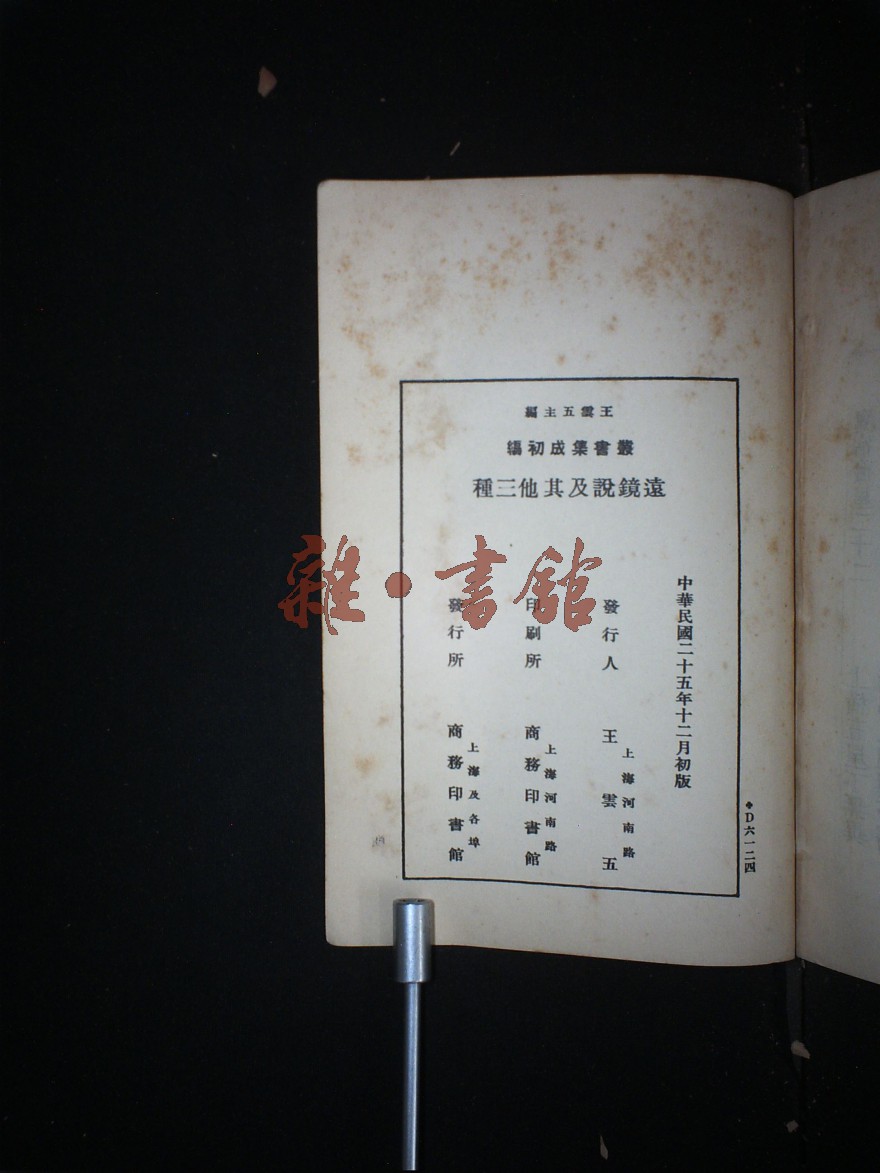 王雲五主編
叢書集成初編
遠鏡說及其他三種
中華民國二十五年十二月初版
發行人 王雲五
上海河南路
印刷所 商務印書館
上海河南路
發行所 商務印書館
上海及各埠
◆D六一二四
雜·書館